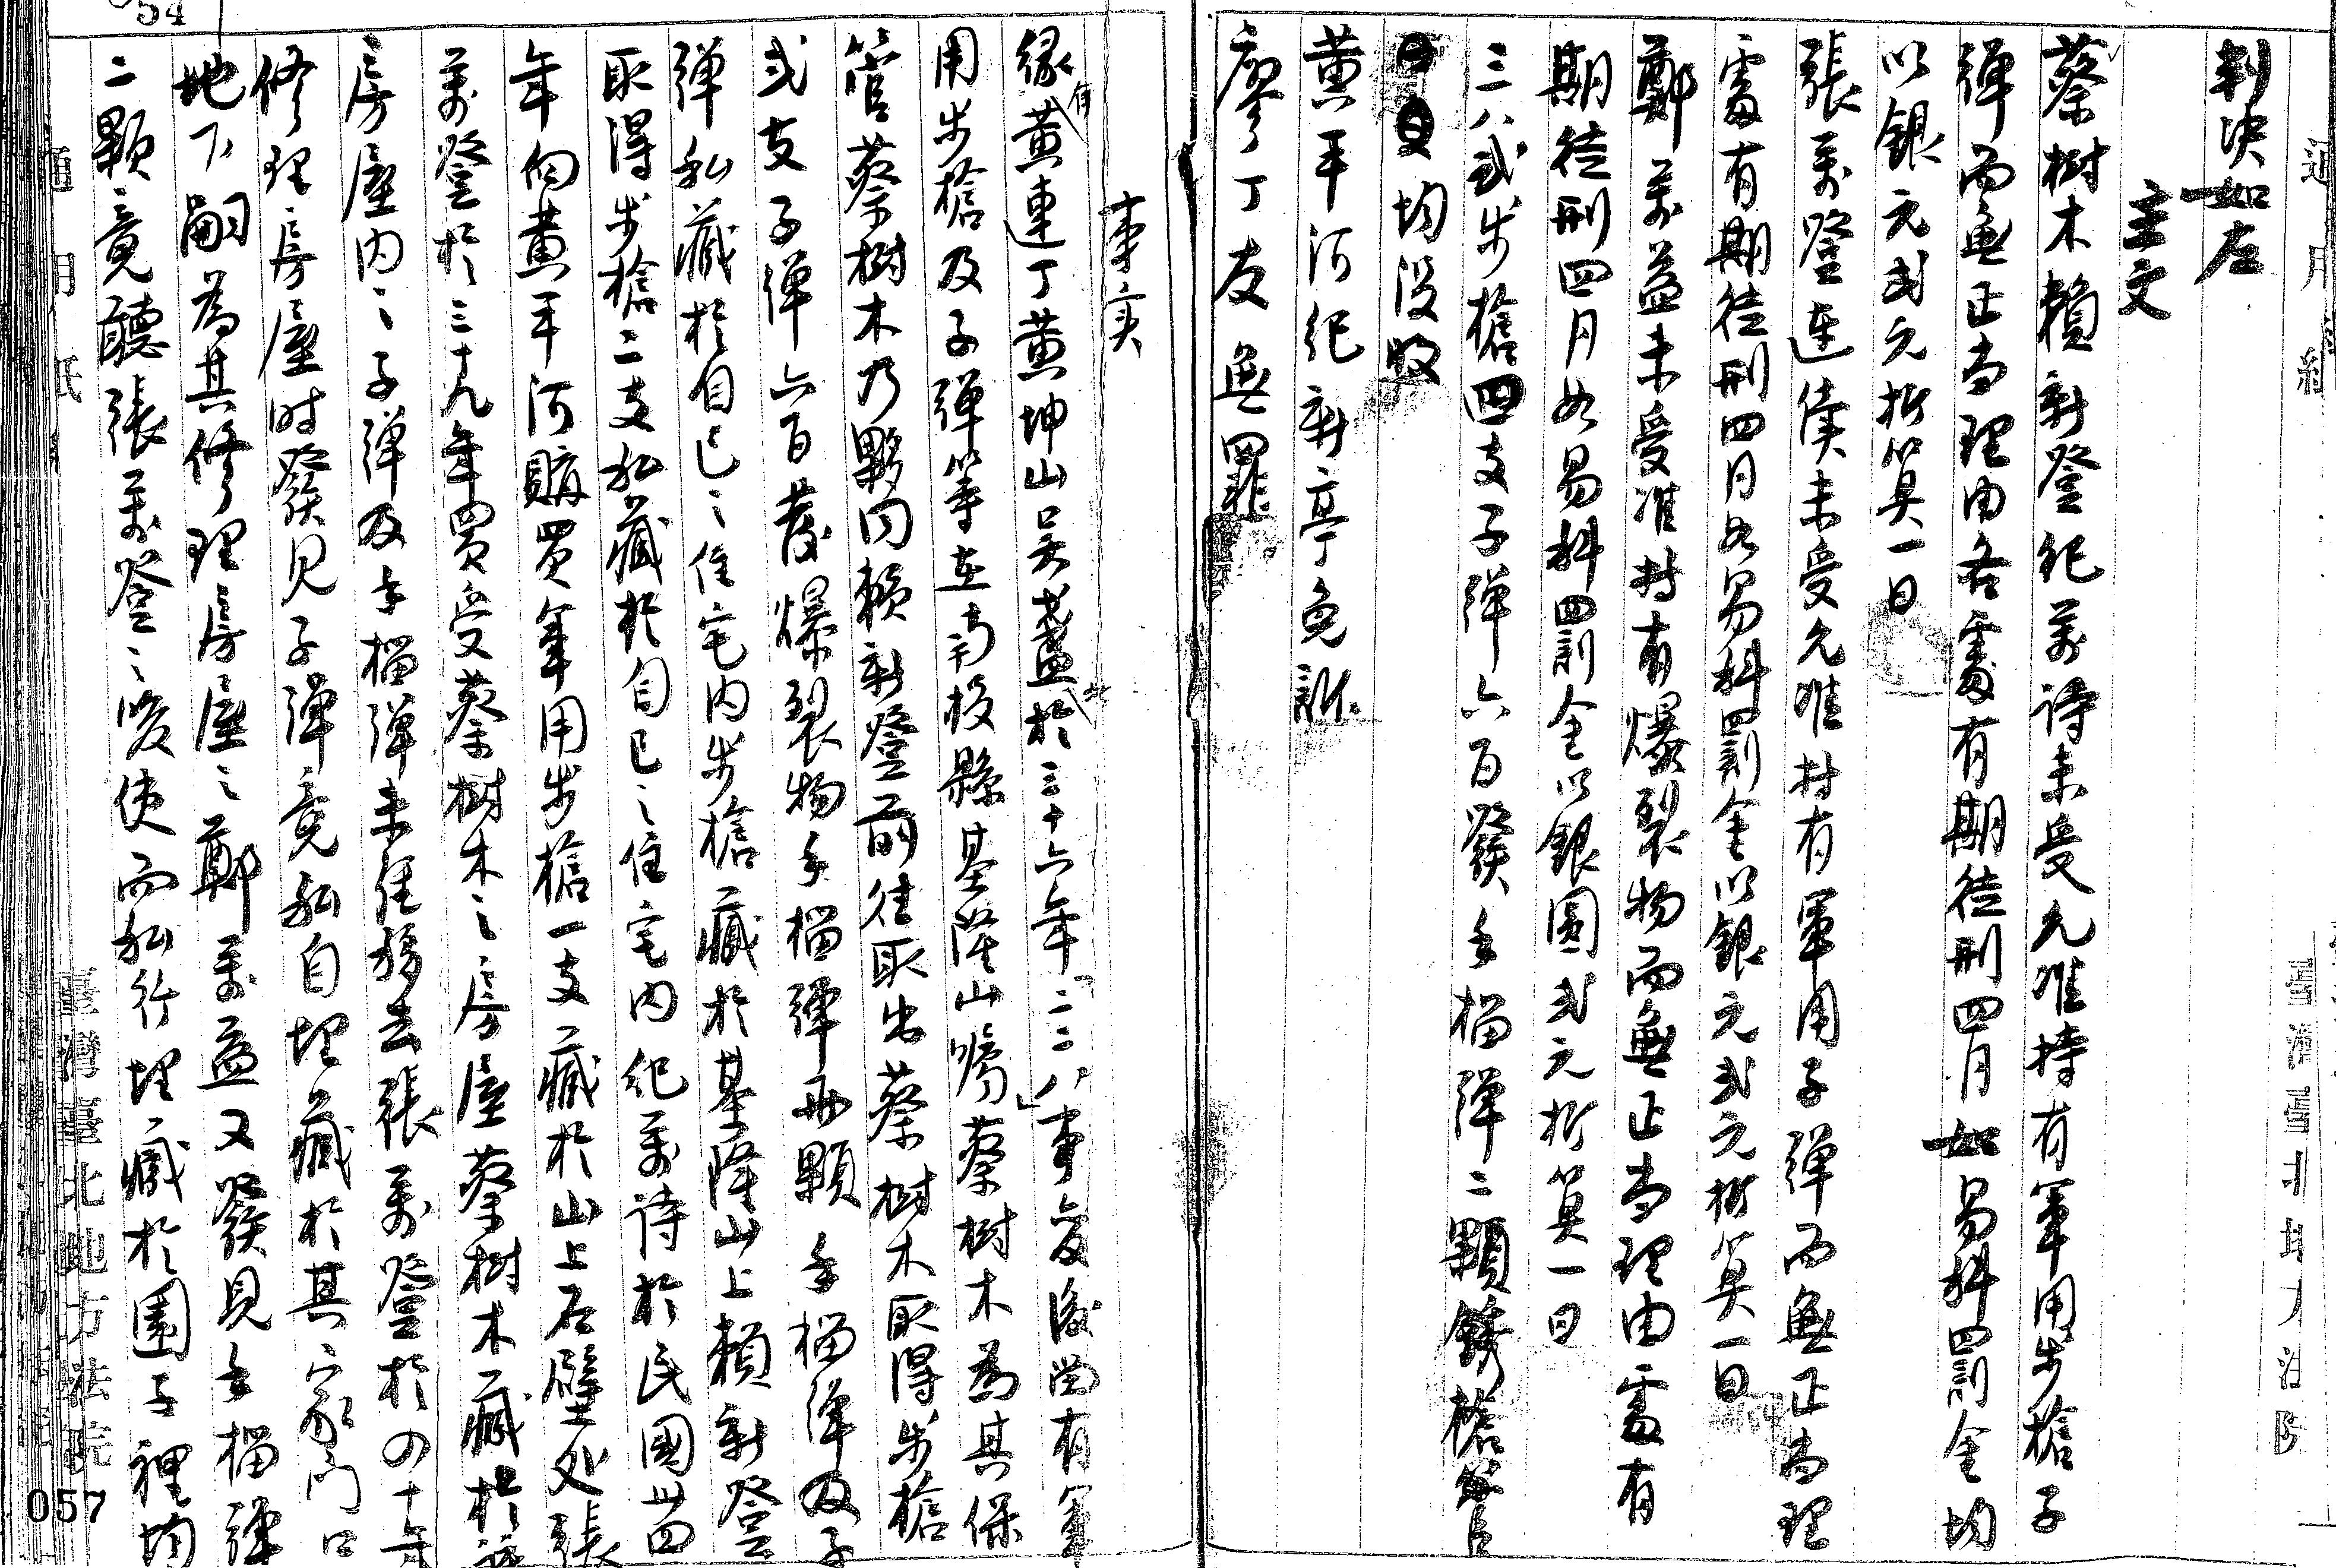 判決如左
主文
蔡樹木賴新登紀萬詩未受允准持有軍用步槍子
彈而無正當理由各處有期徒刑四月如易科罰金均
以銀元弍元折算一日
張萬登連續未受允准持有軍用子彈而無正當理
處有期徒刑四月如易科罰金以銀元弍元折算一日
鄭萬益未受准持有爆裂物而無正當理由處有
期徒刑四月如易科罰金以銀圓弍元折算一日
三八式步槍四支子彈六百發手榴彈二顆銹槍
均沒收
黃平河紀新亭免訴
廖丁友無罪
事实
緣有黃連丁黃坤山吳盞於三十六年「二二八」事变後曾有軍
用步槍及子彈等在南投縣基隆山嘱蔡樹木為其保
管蔡樹木乃夥同賴新登前往取出蔡樹木取得步槍
弍支子彈六百發爆裂物手榴彈兩顆手榴彈及子
彈私藏於自己之住宅內步槍藏於基隆山上賴新登
取得步槍二支私藏於自己之住宅內紀萬詩於民國卅四
年向黃平河購買軍用步槍一支藏於山上石壁处張
萬登於三十九年買受蔡樹木之房屋蔡樹木藏於該
房屋內之子彈及手榴彈未經移去張萬登於四十年
修理房屋时發見子彈竟私自埋藏於其家門口
地下嗣為其修理房屋之鄭萬益又發見手榴彈
二顆竟聽張萬登之唆使而私行埋藏於園子裡均
通用紙
臺灣臺北地方法院
054
057